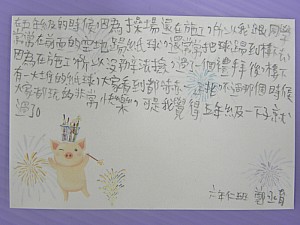 在五年級的時候，因為操場還在施工，所以我跟同學
常常在前面的空地踢紙球，還常常把球踢到樓下去
因為在施工，所以沒辦法撿，過了一個禮拜後，樓下
有一大堆的紙球，大家看到都 不過那個時候
大家都玩的非常快樂，可是我覺得五年級一下子就
過了。
六年仁班 鄭